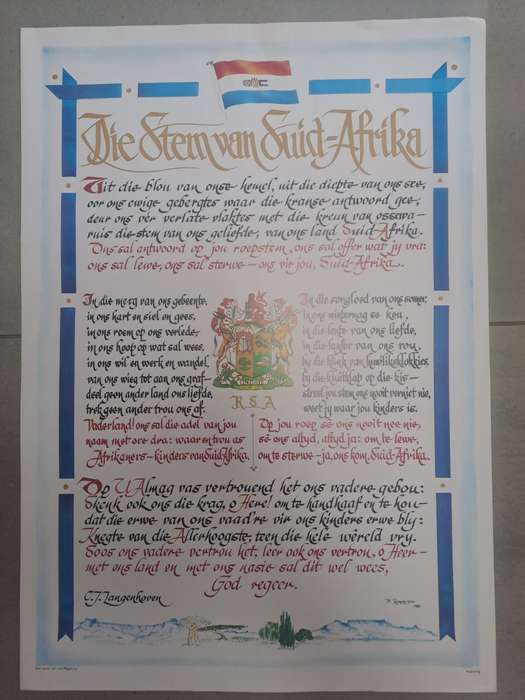 Die Stem van Suid-Afrika
Uit die blou van onse hemel, uit die diepte van ons see,
oor ons ewige gebergtes waar die kranse antwoord gee;
deur ons vêr verlate vlaktes met die kreun van ossewa-
ruis die stem van ons geliefde, van ons land Suid-Afrika.
Ons sal antwoord op jou roepstem, ons sal offer wat jy vra:
ons sal lewe, ons sal sterwe - ons vir jou, Suid-Afrika.
In die merg van ons gebeente,
in ons hart en siel en gees,
in ons roem op ons verlede,
in ons hoop op wat sal wees,
in ons wil en werk en wandel,
van ons wieg tot aan ons graf-
deel geen ander land ons liefde,
trek geen ander trou ons af.
Vaderland! ons sal die adel van jou
naam met ere dra: waar en trou as
Afrikaners - kinders van Suid-Afrika.
R S A
In die songloed van ons somer,
in ons winternag se kou,
in die lente van ons liefde,
in die lanfer van ons rou,
by die klink van huweliksklokkies,
by die kluitklap op die kis -
streel jou stem ons nooit verniet nie,
weet jy waar jou kinders is.
Op jou roep sê ons nooit nee nie,
sê ons altyd, altyd ja: om te lewe,
om te sterwe - ja, ons kom, Suid-Afrika.
Op U Almag vas vertrouend het ons vadere gebou:
Skenk ook ons die krag, o Here! om te handhaaf en te hou-
dat die erwe van ons vaad're vir ons kinders erwe bly:
Knegte van die Allerhoogste, teen die hele wêreld vry.
Soos ons vadere vertrou het, leer ook ons vertrou, o Heer -
met ons land en met ons nasie sal dit wel wees,
God regeer.
C.J. Langenhoven